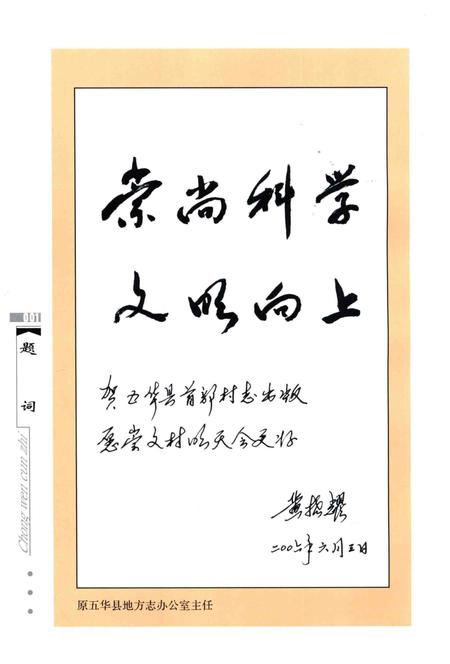 崇尚科学
文明向上
贺五华县首部村志出版
愿崇文村明天会更好
二〇〇六年六月三日
001
题词
Chong wen cun zhi
原五华县地方志办公室主任